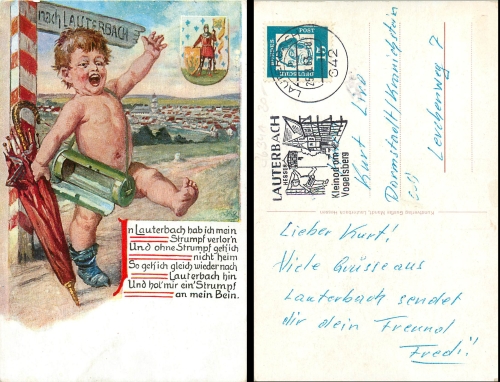 nach LAUTERBACH
In Lauterbach hab ich mein
Strumpf verlor'n
Und ohne Strumpf geh ich
nicht heim
So geh ich gleich wieder nach
Lauterbach hin
Und hol' mir ein' Strumpf
an mein Bein.
DEUTSCHE
POST
15
642
LAUTERBACH
HESSEN
Kleinod am
Vogelsberg
Kurt
Darmstadt/Kranichstein
Lerchenweg 7
Lieber Kurt!
Viele Grüsse aus
Lauterbach sendet
dir dein Freund
Fredi!